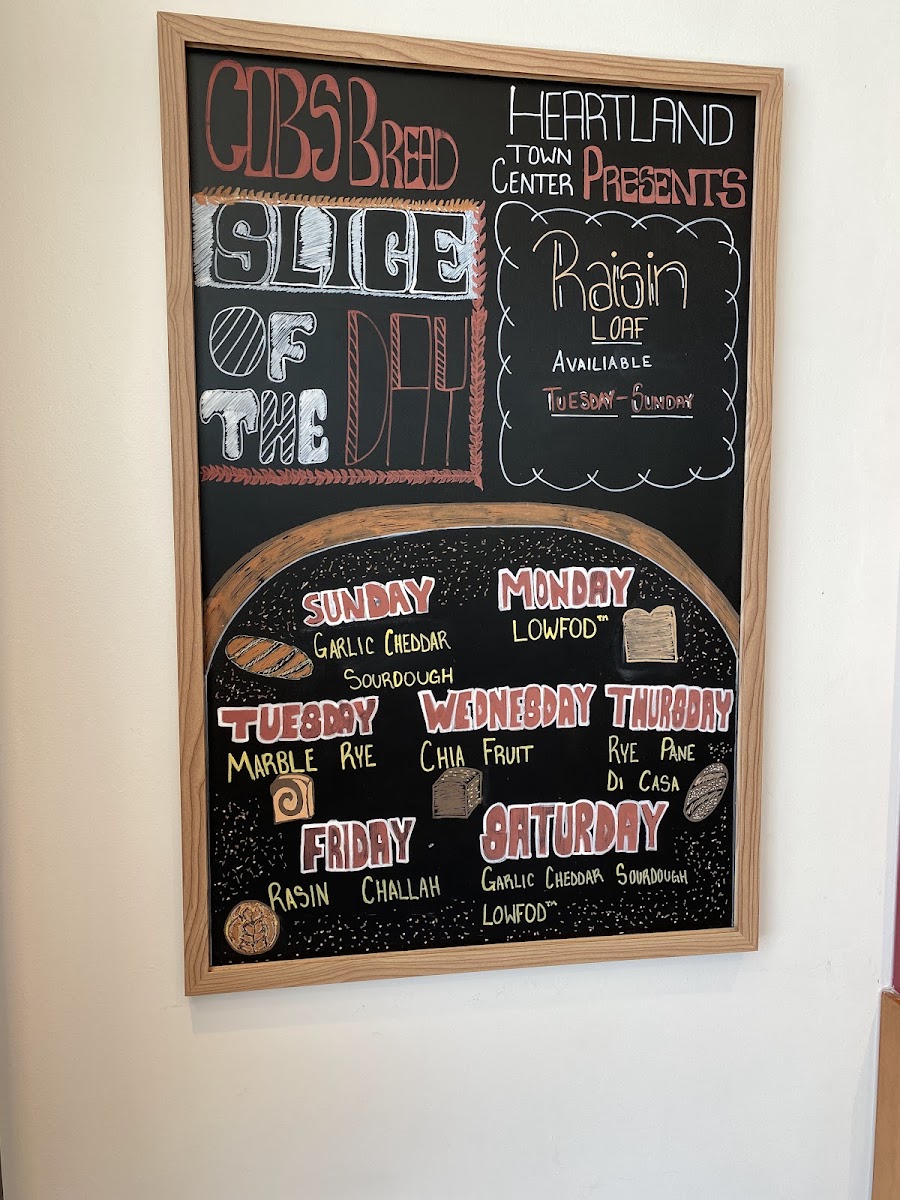 COBS BREAD
SLICE
OF
THE DAY
HEARTLAND
TOWN
CENTER PRESENTS
Raisin
LOAF
AVAILIABLE
TUESDAY-SUNDAY
SUNDAY
GARLIC CHEDDAR
SOURDOUGH
MONDAY
LOWFOD™
TUESDAY
MARBLE RYE
WEDNESDAY
CHIA FRUIT
THURSDAY
RYE PANE
DI CASA
FRIDAY
RASIN CHALLAH
SATURDAY
GARLIC CHEDDAR SOURDOUGH
LOWFOD™